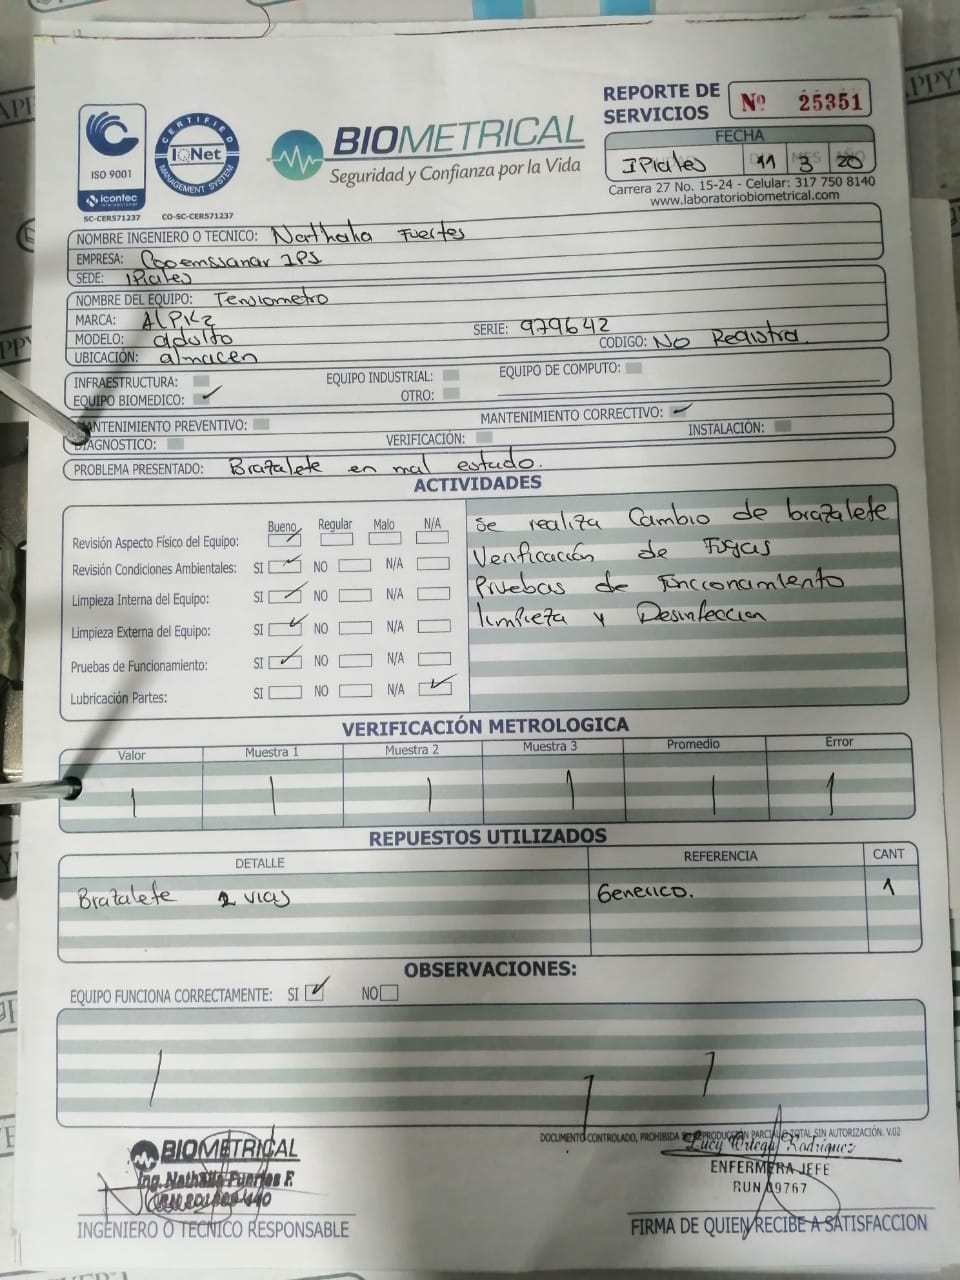 REPORTE DE SERVICIOS Nº 25351
FECHA
IPiales 11 3 20
ISO 9001
icontec
SC-CER571237
CERTIFIED
IQNet
MANAGEMENT SYSTEM
CO-SC-CER571237
BIOMETRICAL
Seguridad y Confianza por la Vida
Carrera 27 No. 15-24 - Celular: 317 750 8140
www.laboratoriobiometrical.com
NOMBRE INGENIERO O TECNICO: Nathalia Fuertes
EMPRESA: Copemssanar IPS
SEDE: IPiales
NOMBRE DEL EQUIPO: Tensiometro
MARCA: ALPK2 SERIE: 979642
MODELO: adulto CODIGO: No Registra.
UBICACIÓN: almacen
INFRAESTRUCTURA: EQUIPO INDUSTRIAL: EQUIPO DE COMPUTO:
EQUIPO BIOMEDICO: OTRO:
MANTENIMIENTO PREVENTIVO: MANTENIMIENTO CORRECTIVO:
DIAGNOSTICO: VERIFICACIÓN: INSTALACIÓN:
PROBLEMA PRESENTADO: Brazalete en mal estado.
ACTIVIDADES
Bueno Regular Malo N/A
Revisión Aspecto Físico del Equipo:
Revisión Condiciones Ambientales: SI NO N/A
Limpieza Interna del Equipo: SI NO N/A
Limpieza Externa del Equipo: SI NO N/A
Pruebas de Funcionamiento: SI NO N/A
Lubricación Partes: SI NO N/A
se realiza Cambio de brazalete
Verificación de Fugas
Pruebas de Funcionamiento
limpieza y Desinfeccion
VERIFICACIÓN METROLOGICA
Valor Muestra 1 Muestra 2 Muestra 3 Promedio Error
REPUESTOS UTILIZADOS
DETALLE REFERENCIA CANT
Brazalete 2 vias Generico. 1
OBSERVACIONES:
EQUIPO FUNCIONA CORRECTAMENTE: SI NO
DOCUMENTO CONTROLADO, PROHIBIDA SU REPRODUCCIÓN PARCIAL O TOTAL SIN AUTORIZACIÓN. V.02
BIOMETRICAL
Ing. Nathalia Fuertes F.
INGENIERO O TECNICO RESPONSABLE
Lucy Ortega Rodriguez
ENFERMERA JEFE
RUN 09767
FIRMA DE QUIEN RECIBE A SATISFACCION